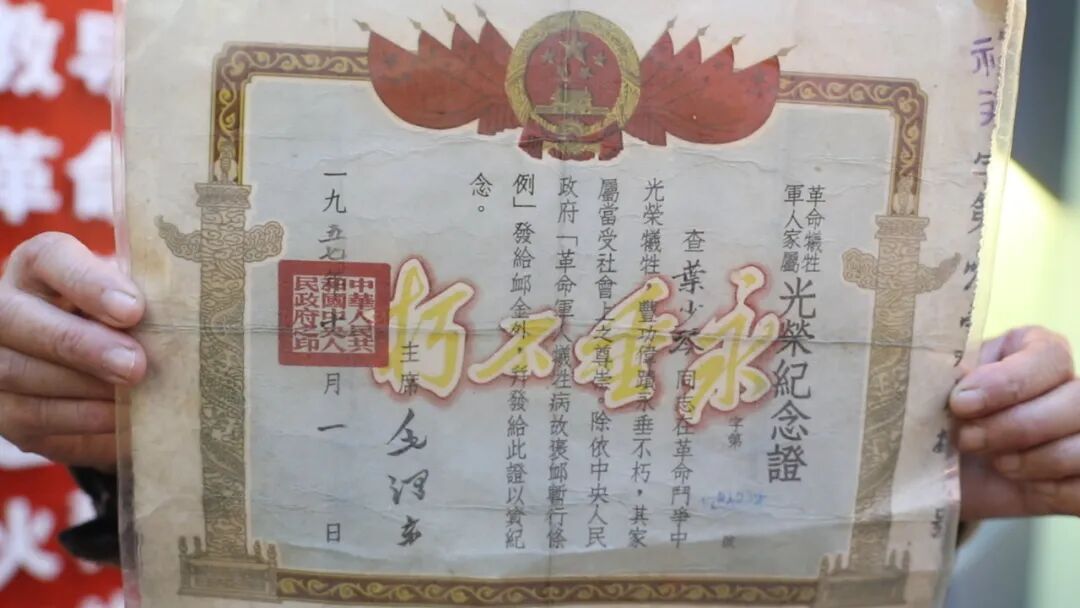 革命犧牲
軍人家屬
光榮紀念證
字第
號
查葉少同志在革命鬥爭中
光榮犧牲,豐功偉績永垂不朽,其家
屬當受社會上之尊崇。除依中央人民
政府「革命軍人犧牲病故褒卹暫行條
例」發給卹金外,並發給此證以資紀
念。
永垂不朽
主席 毛澤東
一九五七年 月一日
中華人民共
和國中央人
民政府之印
教學
革命
火